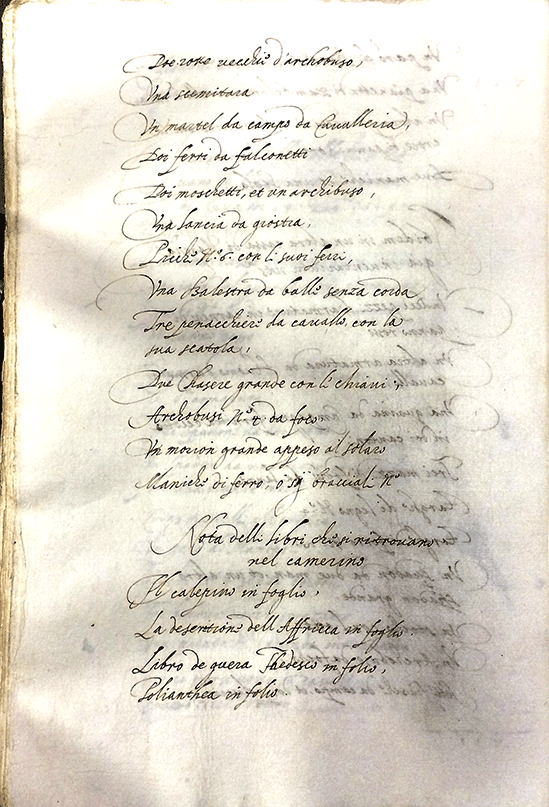 Doe rote vecchie d'archobuso,
Una scemitara
Un martel da campo da Cavalleria,
Doi ferri da falconetti
Doi moschetti, et un archibuso,
Una lancia da giostra,
Picche N.º 6. con li suoi ferri,
Una Balestra da balle senza corda
Tre penacchiere da cavallo, con la
sua scatola,
Due Chasere grande con le chiavi,
Archobusi N.º 4. da foco
Un morion grande appeso al solaro
Maniche di ferro, o sij bracciali Nº
Nota delli libri che si ritrovano
nel camerino
Il calepino in foglio,
La descrittione dell'Affrica in foglio.
Libro de guera Thedesco in folio,
Polianthea in folio.